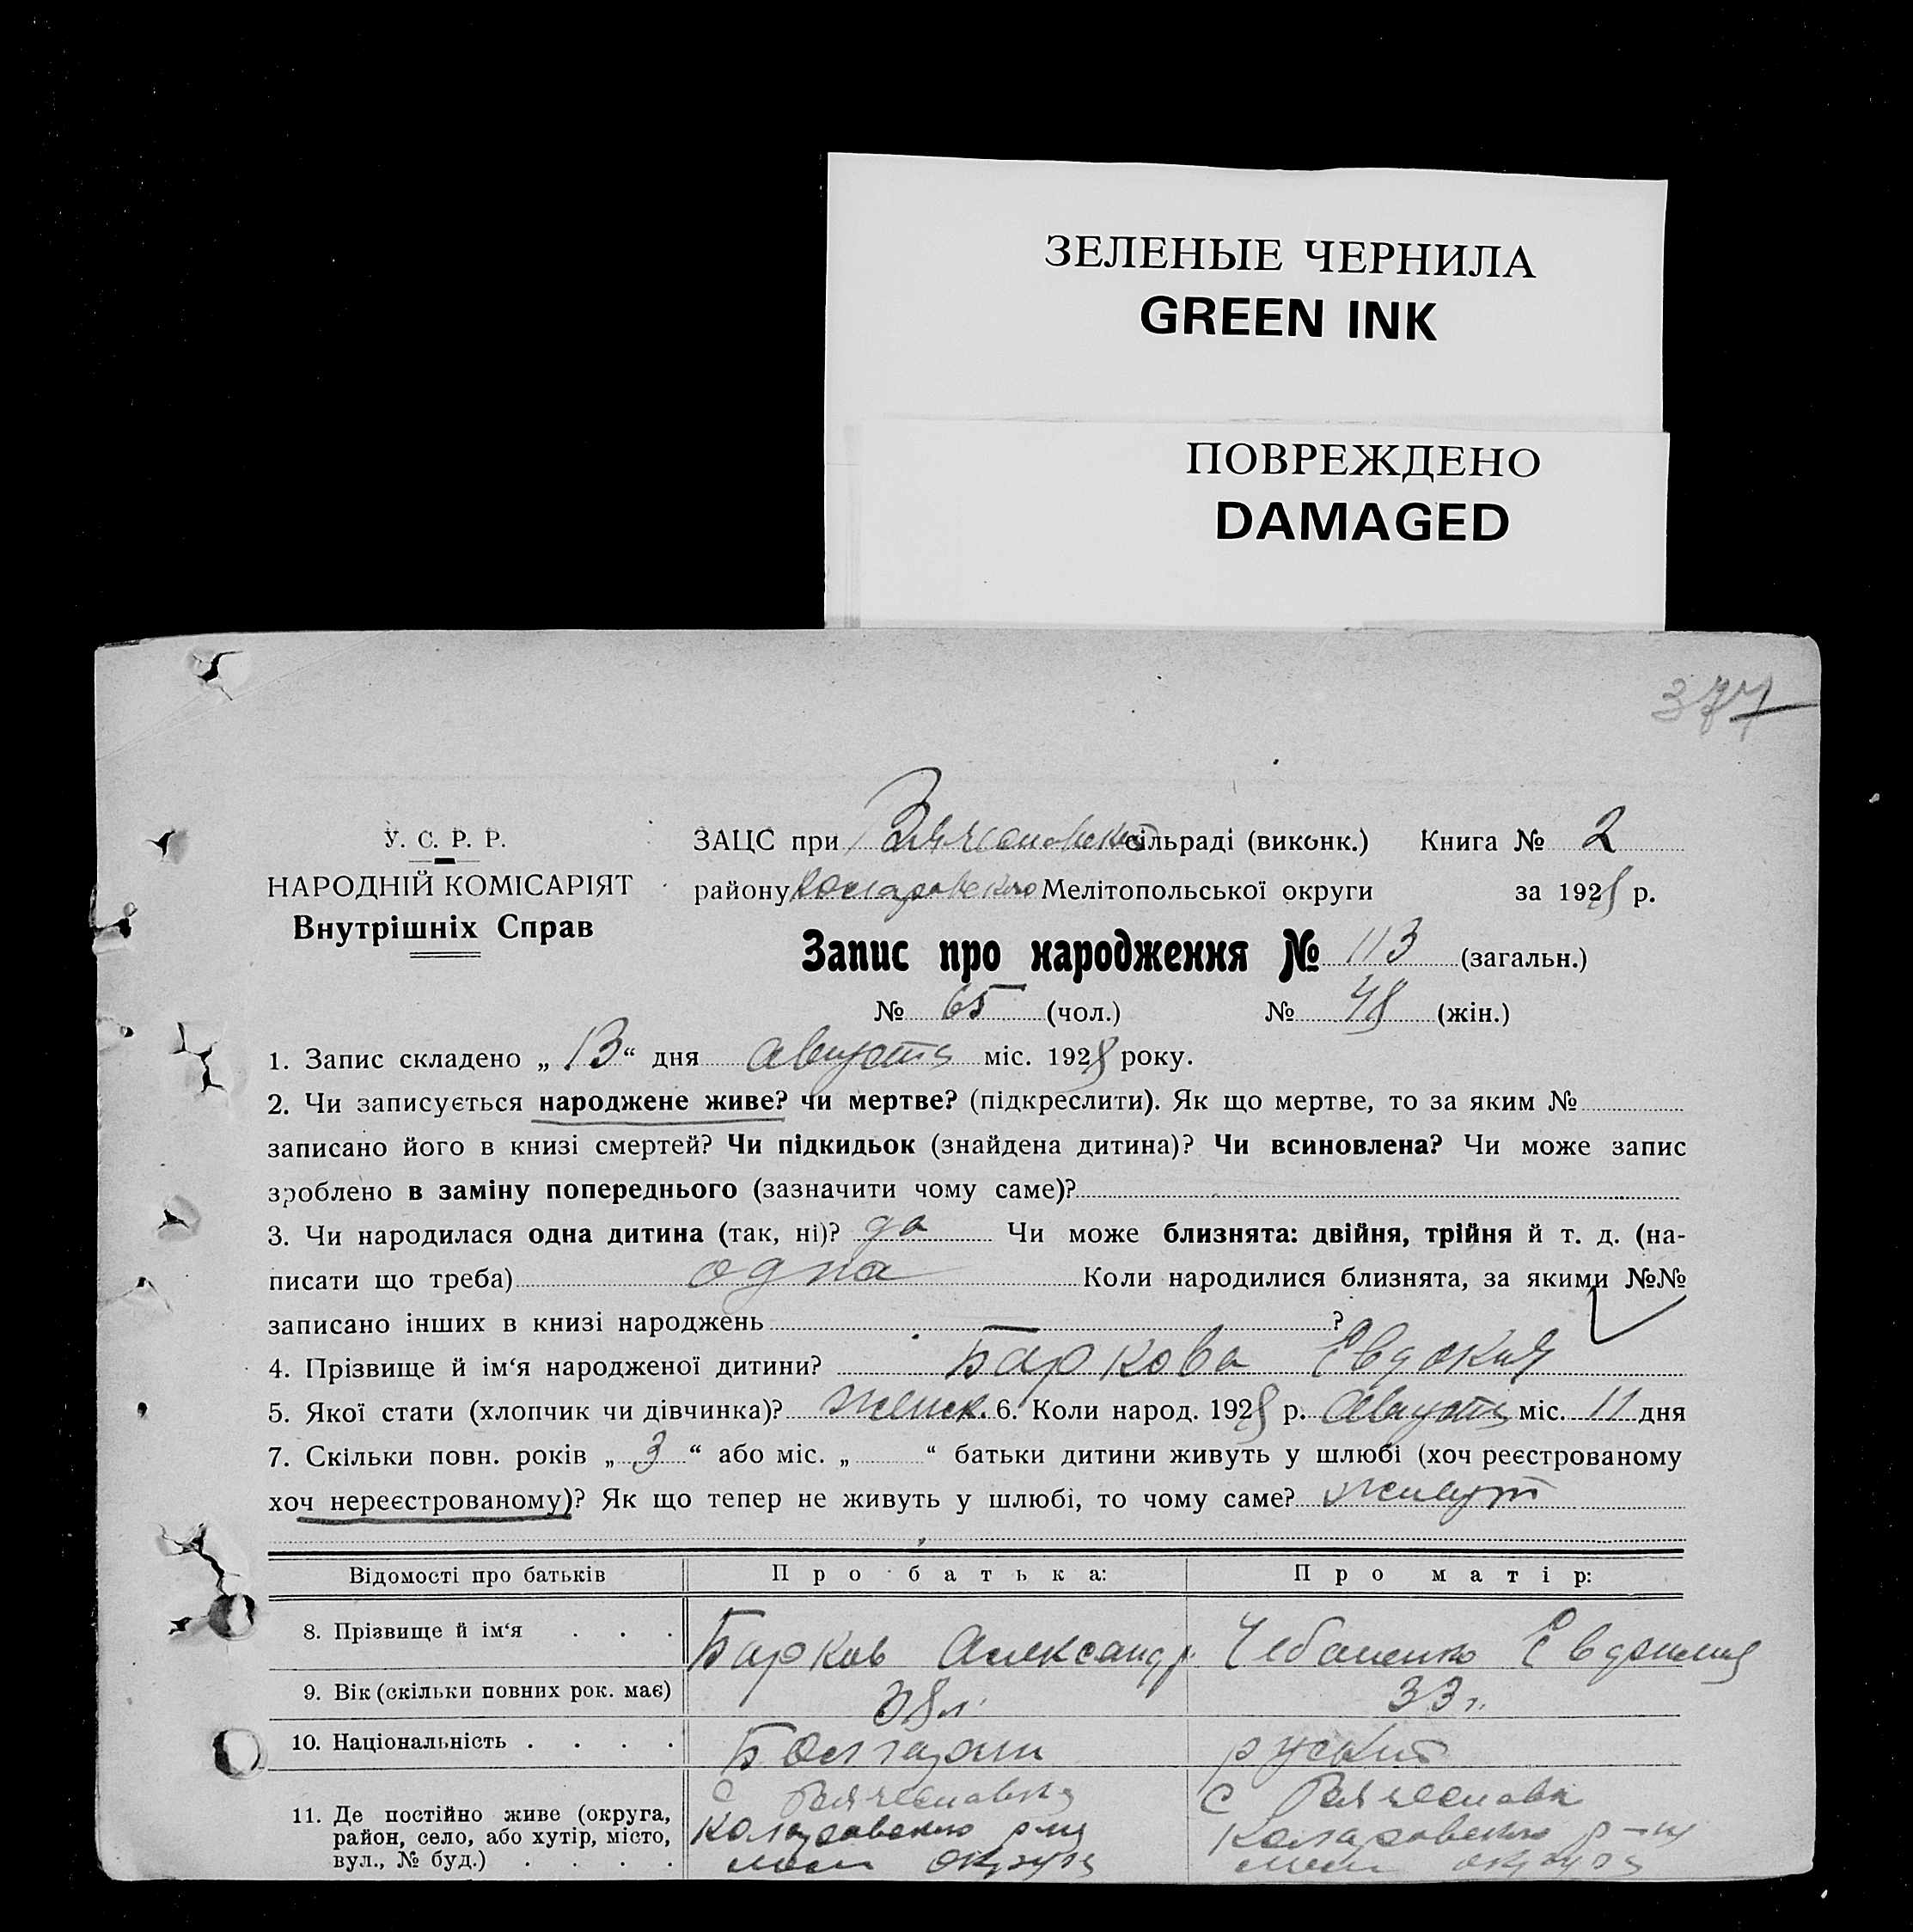 ЗЕЛЕНЫЕ ЧЕРНИЛА
GREEN INK
ПОВРЕЖДЕНО
DAMAGED
377
У. С. Р. Р.
НАРОДНІЙ КОМІСАРІЯТ
Внутрішніх Справ
ЗАЦС при сільраді (виконк.) Книга № 2
району Коларовского Мелітопольської округи за 1928 р.
Запис про народження № 113 (загальн.)
№ 65 (чол.) № 48 (жін.)
1. Запис складено „ 13 “ дня августа міс. 1928 року.
2. Чи записується народжене живе? чи мертве? (підкреслити). Як що мертве, то за яким №
записано його в книзі смертей? Чи підкидьок (знайдена дитина)? Чи всиновлена? Чи може запис
зроблено в заміну попереднього (зазначити чому саме)?
3. Чи народилася одна дитина (так, ні)? да Чи може близнята: двійня, трійня й т. д. (на-
писати що треба) одна Коли народилися близнята, за якими №№
записано інших в книзі народжень ?
4. Прізвище й ім‘я народженої дитини? Баркова Євдокия
5. Якої стати (хлопчик чи дівчинка)? женск. 6. Коли народ. 1928 р. августа міс. 11 дня
7. Скільки повн. років „ 3 “ або міс. „ “ батьки дитини живуть у шлюбі (хоч реєстрованому
хоч нереєстрованому)? Як що тепер не живуть у шлюбі, то чому саме? живут
Відомості про батьків Про батька: Про матір:
8. Прізвище й ім‘я . . . Барков Александр Чебаненко
9. Вік (скільки повних рок. має) 38 л. 33 г.
10. Національність . . . . Болгарин руский
11. Де постійно живе (округа,
район, село, або хутір, місто,
вул., № буд.) . . . .
с
Коларовского р-на
мел округа
с
Коларовского р-на
мел округа